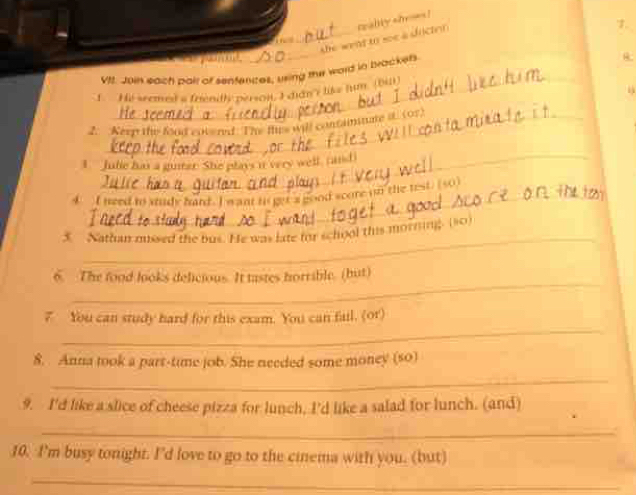 but reality shows!
painful, so she went to see a doctor.
7.
8.
VII. Join each pair of sentences, using the word in brackets.
1. He seemed a friendly person. I didn't like him. (but)
He seemed a friendly person but I didn't like him
2. Keep the food covered. The flies will contaminate it. (or)
keep the food coverd, or the files will contaminate it.
3. Julie has a guitar. She plays it very well. (and)
Julie has a guitar and plays it very well
4. I need to study hard. I want to get a good score on the test. (so)
I need to study hard so I want to get a good score on the test
5. Nathan missed the bus. He was late for school this morning. (so)
6. The food looks delicious. It tastes horrible. (but)
7. You can study hard for this exam. You can fail. (or)
8. Anna took a part-time job. She needed some money (so)
9. I'd like a slice of cheese pizza for lunch. I'd like a salad for lunch. (and)
10. I'm busy tonight. I'd love to go to the cinema with you. (but)